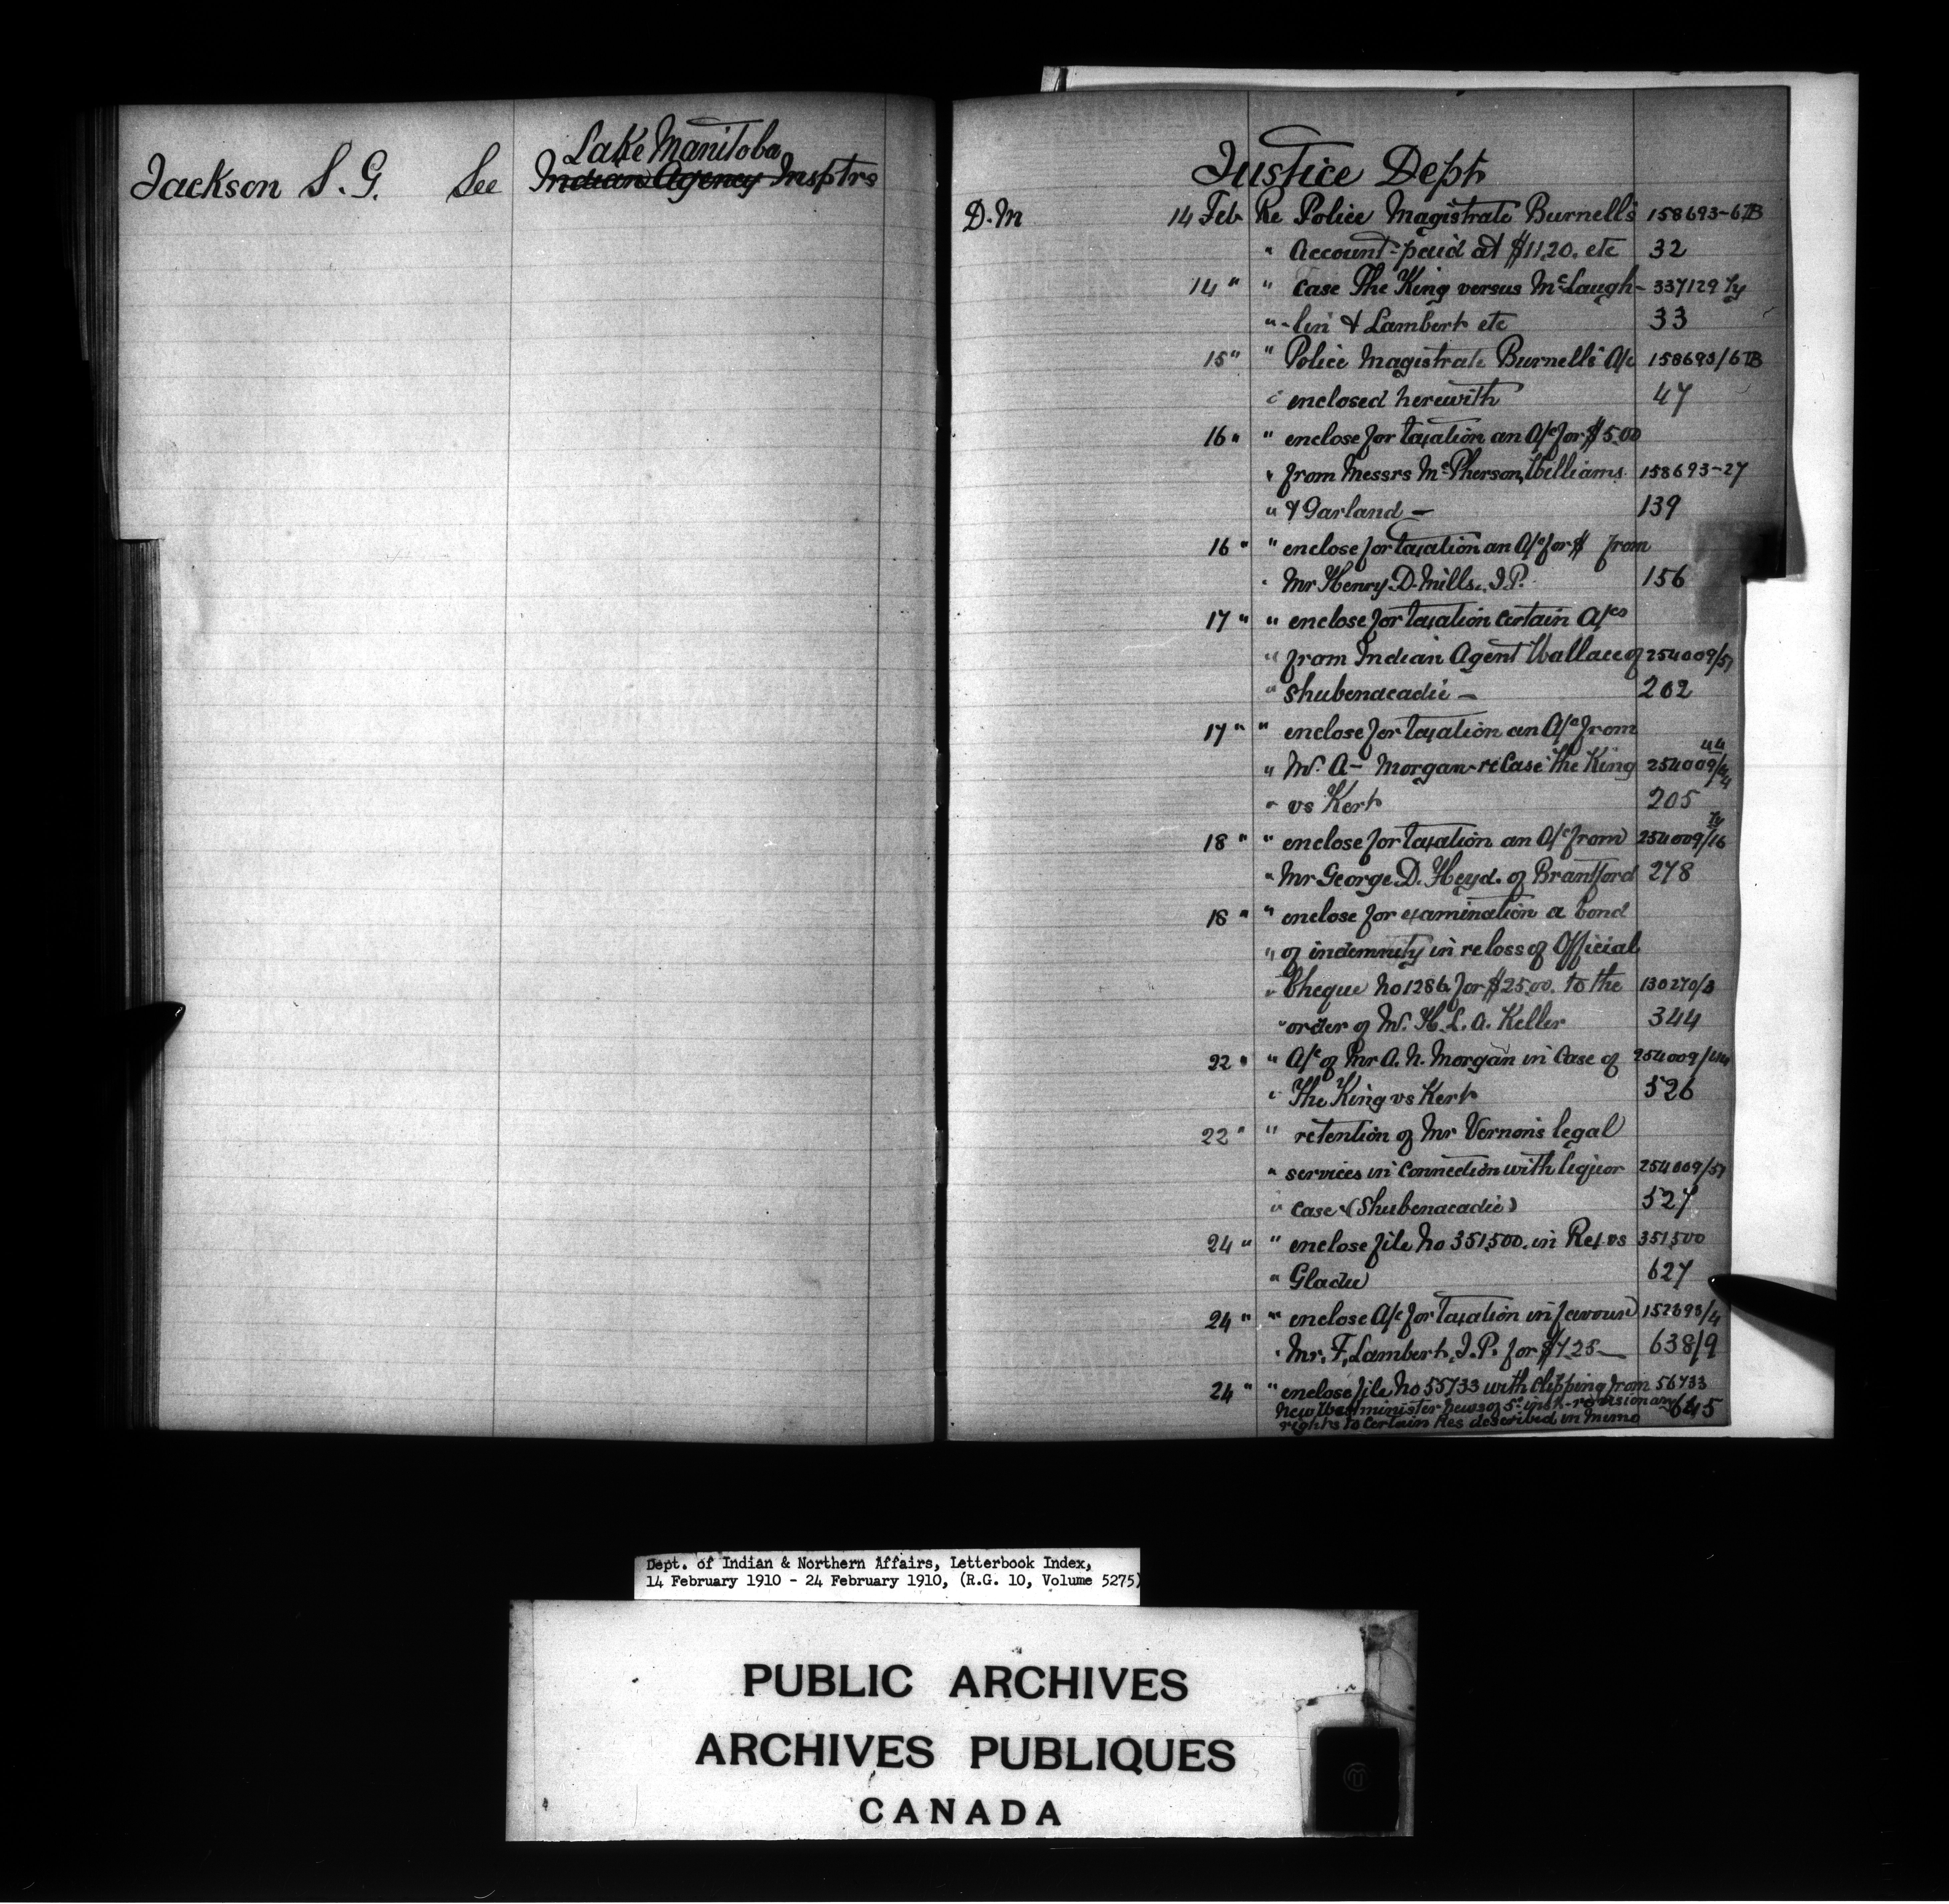 Lake Manitoba
Jackson S. G. See Indian Agency Insptrs
Justice Dept
D.M 14 Feb Re Police Magistrate Burnell's 158693-6TB
" Account-paid at $11.20. etc 32
14 " " Case The King versus McLaugh- 337129 Ty
" -lin & Lambert etc 33
15 " " Police Magistrate Burnell's A/c 158693/6TB
" enclosed herewith 47
16 " " enclose for taxation an A/c for $5.00
" from Messrs McPherson, Williams 158693-27
" & Garland — 139
16 " " enclose for taxation an A/c for $ from
" Mr Henry D. Mills, J.P. 156
17 " " enclose for taxation certain A/cs
" from Indian Agent Wallace of 254009/51
" Shubenacadie — 202
17 " " enclose for taxation an A/c from
" Mr. A— Morgan re Case The King 254009/
" vs Kert 205
18 " " enclose for taxation an A/c from 254009/16 Ty
" Mr George D. Heyd. of Brantford 278
18 " " enclose for examination a bond
" of indemnity in re loss of Official
" Cheque No 1286 for $25.00. to the 130270/3
" order of Mr. H. L. A. Keller 344
22 " " A/c of Mr A. N. Morgan in Case of 254009/44
" The King vs Kert 526
22 " " retention of Mr Vernon's legal
" services in connection with liquor 254009/51
" case (Shubenacadie) 527
24 " " enclose file No 351,500. in Rex vs 351,500
" Gladu 627
24 " " enclose A/c for taxation in favour 152393/4
" Mr. F. Lambert, J.P. for $7.25— 638/9
24 " " enclose file No 55733 with clipping from 56733
New Westminister News of 5th inst-revisionary 645
rights to certain Res described in memo
Dept. of Indian & Northern Affairs, Letterbook Index,
14 February 1910 - 24 February 1910, (R.G. 10, Volume 5275)
PUBLIC ARCHIVES
ARCHIVES PUBLIQUES
CANADA